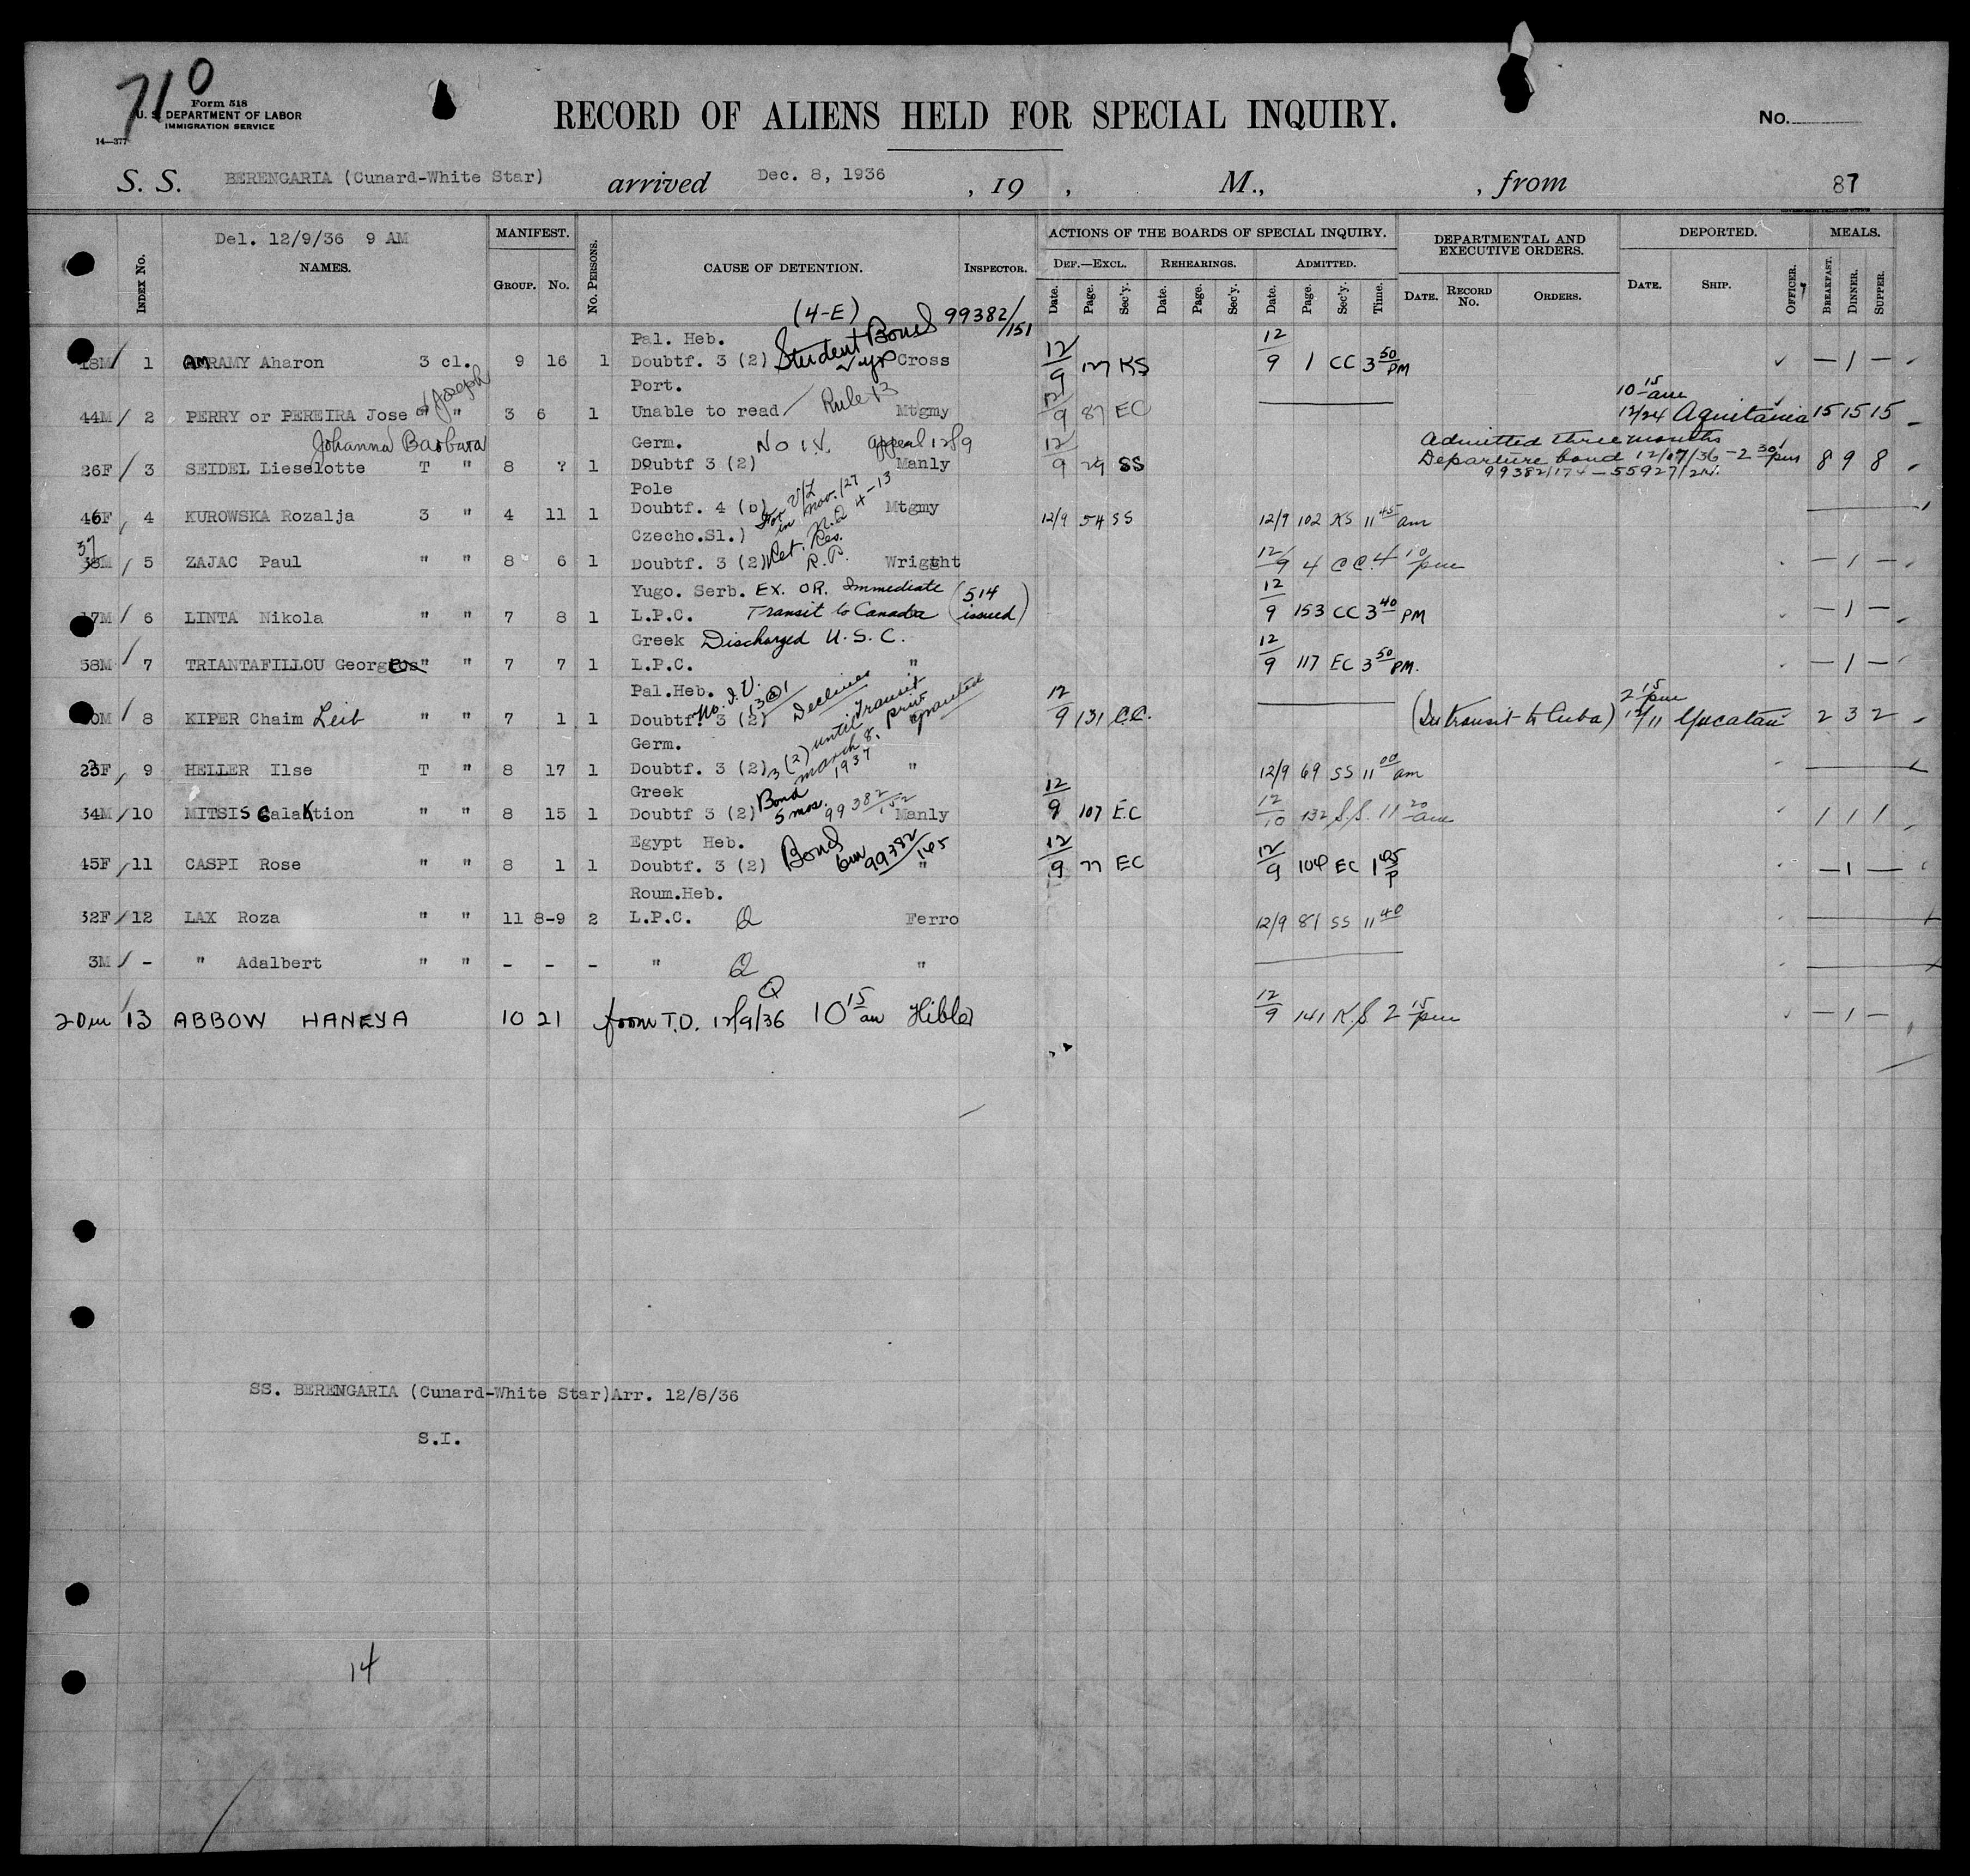 710
Form 518
U. S. DEPARTMENT OF LABOR
IMMIGRATION SERVICE
14—377
RECORD OF ALIENS HELD FOR SPECIAL INQUIRY.
No.
S. S. BERENGARIA (Cunard-White Star) arrived Dec. 8, 1936 , 19 , M., , from 87
Del. 12/9/36 9 AM
INDEX No. NAMES. MANIFEST. GROUP. No. No. PERSONS. CAUSE OF DETENTION. INSPECTOR.
ACTIONS OF THE BOARDS OF SPECIAL INQUIRY. DEF.—EXCL. Date. Page. Sec'y. REHEARINGS. Date. Page. Sec'y. ADMITTED. Date. Page. Sec'y. Time.
DEPARTMENTAL AND EXECUTIVE ORDERS. DATE. RECORD No. ORDERS.
DEPORTED. DATE. SHIP. OFFICER. MEALS. BREAKFAST. DINNER. SUPPER.
(4-E) 99382/151
Pal. Heb. Student Bond
18M 1 AMRAMY Aharon 3 cl. 9 16 1 Doubtf. 3 (2) Cross 12/9 127 KS 12/9 1 CC 3 50 PM — 1 —
Port. Joseph 10 15 am
44M 2 PERRY or PEREIRA Jose " " 3 6 1 Unable to read Rule 13 Mtgmy 12/9 87 EC 12/24 Aquitania 15 15 15
Johanna Barbara Germ. No I.V. Appeal 12/9 Admitted three months
26F 3 SEIDEL Lieselotte T " 8 ? 1 Doubtf 3 (2) Manly 12/9 29 SS Departure bond 12/17/36 - 2 30 pm 8 9 8
99382/174 - 55927/
Pole
46F 4 KUROWSKA Rozalja 3 " 4 11 1 Doubtf. 4 (b) For V/L in Nov./27 R.Q 4-13 Mtgmy 12/9 54 SS 12/9 102 KS 11 45 am
Czecho.Sl.) Ret. Res.
37
38M 5 ZAJAC Paul " " 8 6 1 Doubtf. 3 (2) R.P. Wright 12/9 4 CC 4 10 pm — 1 —
Yugo. Serb. EX. OR. Immediate (514
17M 6 LINTA Nikola " " 7 8 1 L.P.C. Transit to Canada issued) 12/9 153 CC 3 40 PM — 1 —
Greek Discharged U.S.C.
58M 7 TRIANTAFILLOU Georgeos " " 7 7 1 L.P.C. " 12/9 117 EC 3 50 PM. — 1 —
Pal.Heb. No. I.V. 13@1 Declines Transit priv granted 2 15 pm
30M 8 KIPER Chaim Leib " " 7 1 1 Doubtf 3 (2) " 12/9 131 C.C. (In transit to Cuba) 12/11 Yucatan 2 3 2
Germ.
23F 9 HELLER Ilse T " 8 17 1 Doubtf. 3 (2) 3(2) until March 8, 1937 " 12/9 69 SS 11 00 am
Greek
34M 10 MITSIS GalaKtion " " 8 15 1 Doubtf 3 (2) Bond 5 mos. 99382/152 Manly 12/9 107 EC 12/10 132 S.S. 11 20 am 1 1 1
Egypt Heb.
45F 11 CASPI Rose " " 8 1 1 Doubtf. 3 (2) Bond 6m 99382/145 " 12/9 77 EC 12/9 104 EC 1 45 P — 1 —
Roum.Heb.
32F 12 LAX Roza " " 11 8-9 2 L.P.C. Q Ferro 12/9 81 SS 11 40
3M - " Adalbert " " - - - " Q "
Q
20m 13 ABBOW HANEYA 10 21 from T.D. 12/9/36 10 15 am Hibler 12/9 141 K.S. 2 15 pm — 1 —
SS. BERENGARIA (Cunard-White Star)Arr. 12/8/36
S.I.
14